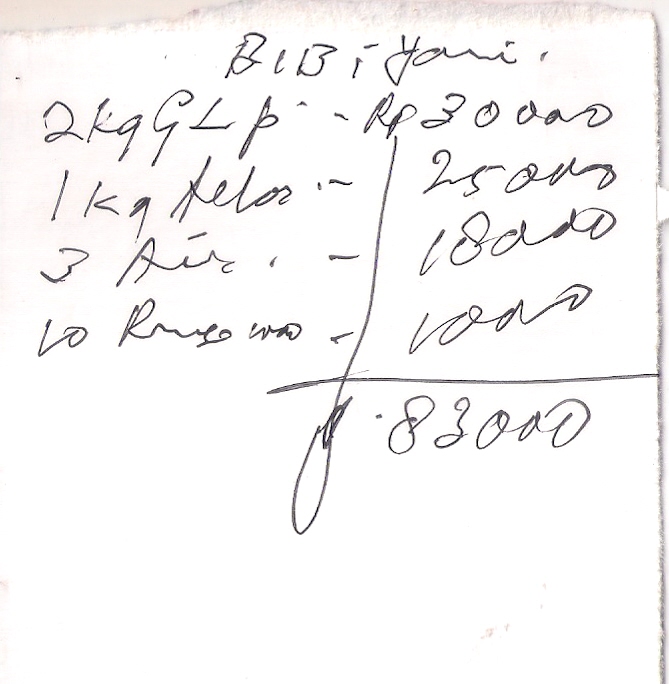 BIBI Yani.
2 kg GLP - Rp 30000
1 kg telor - 25000
3 Air. - 18000
10 - 10000
83000